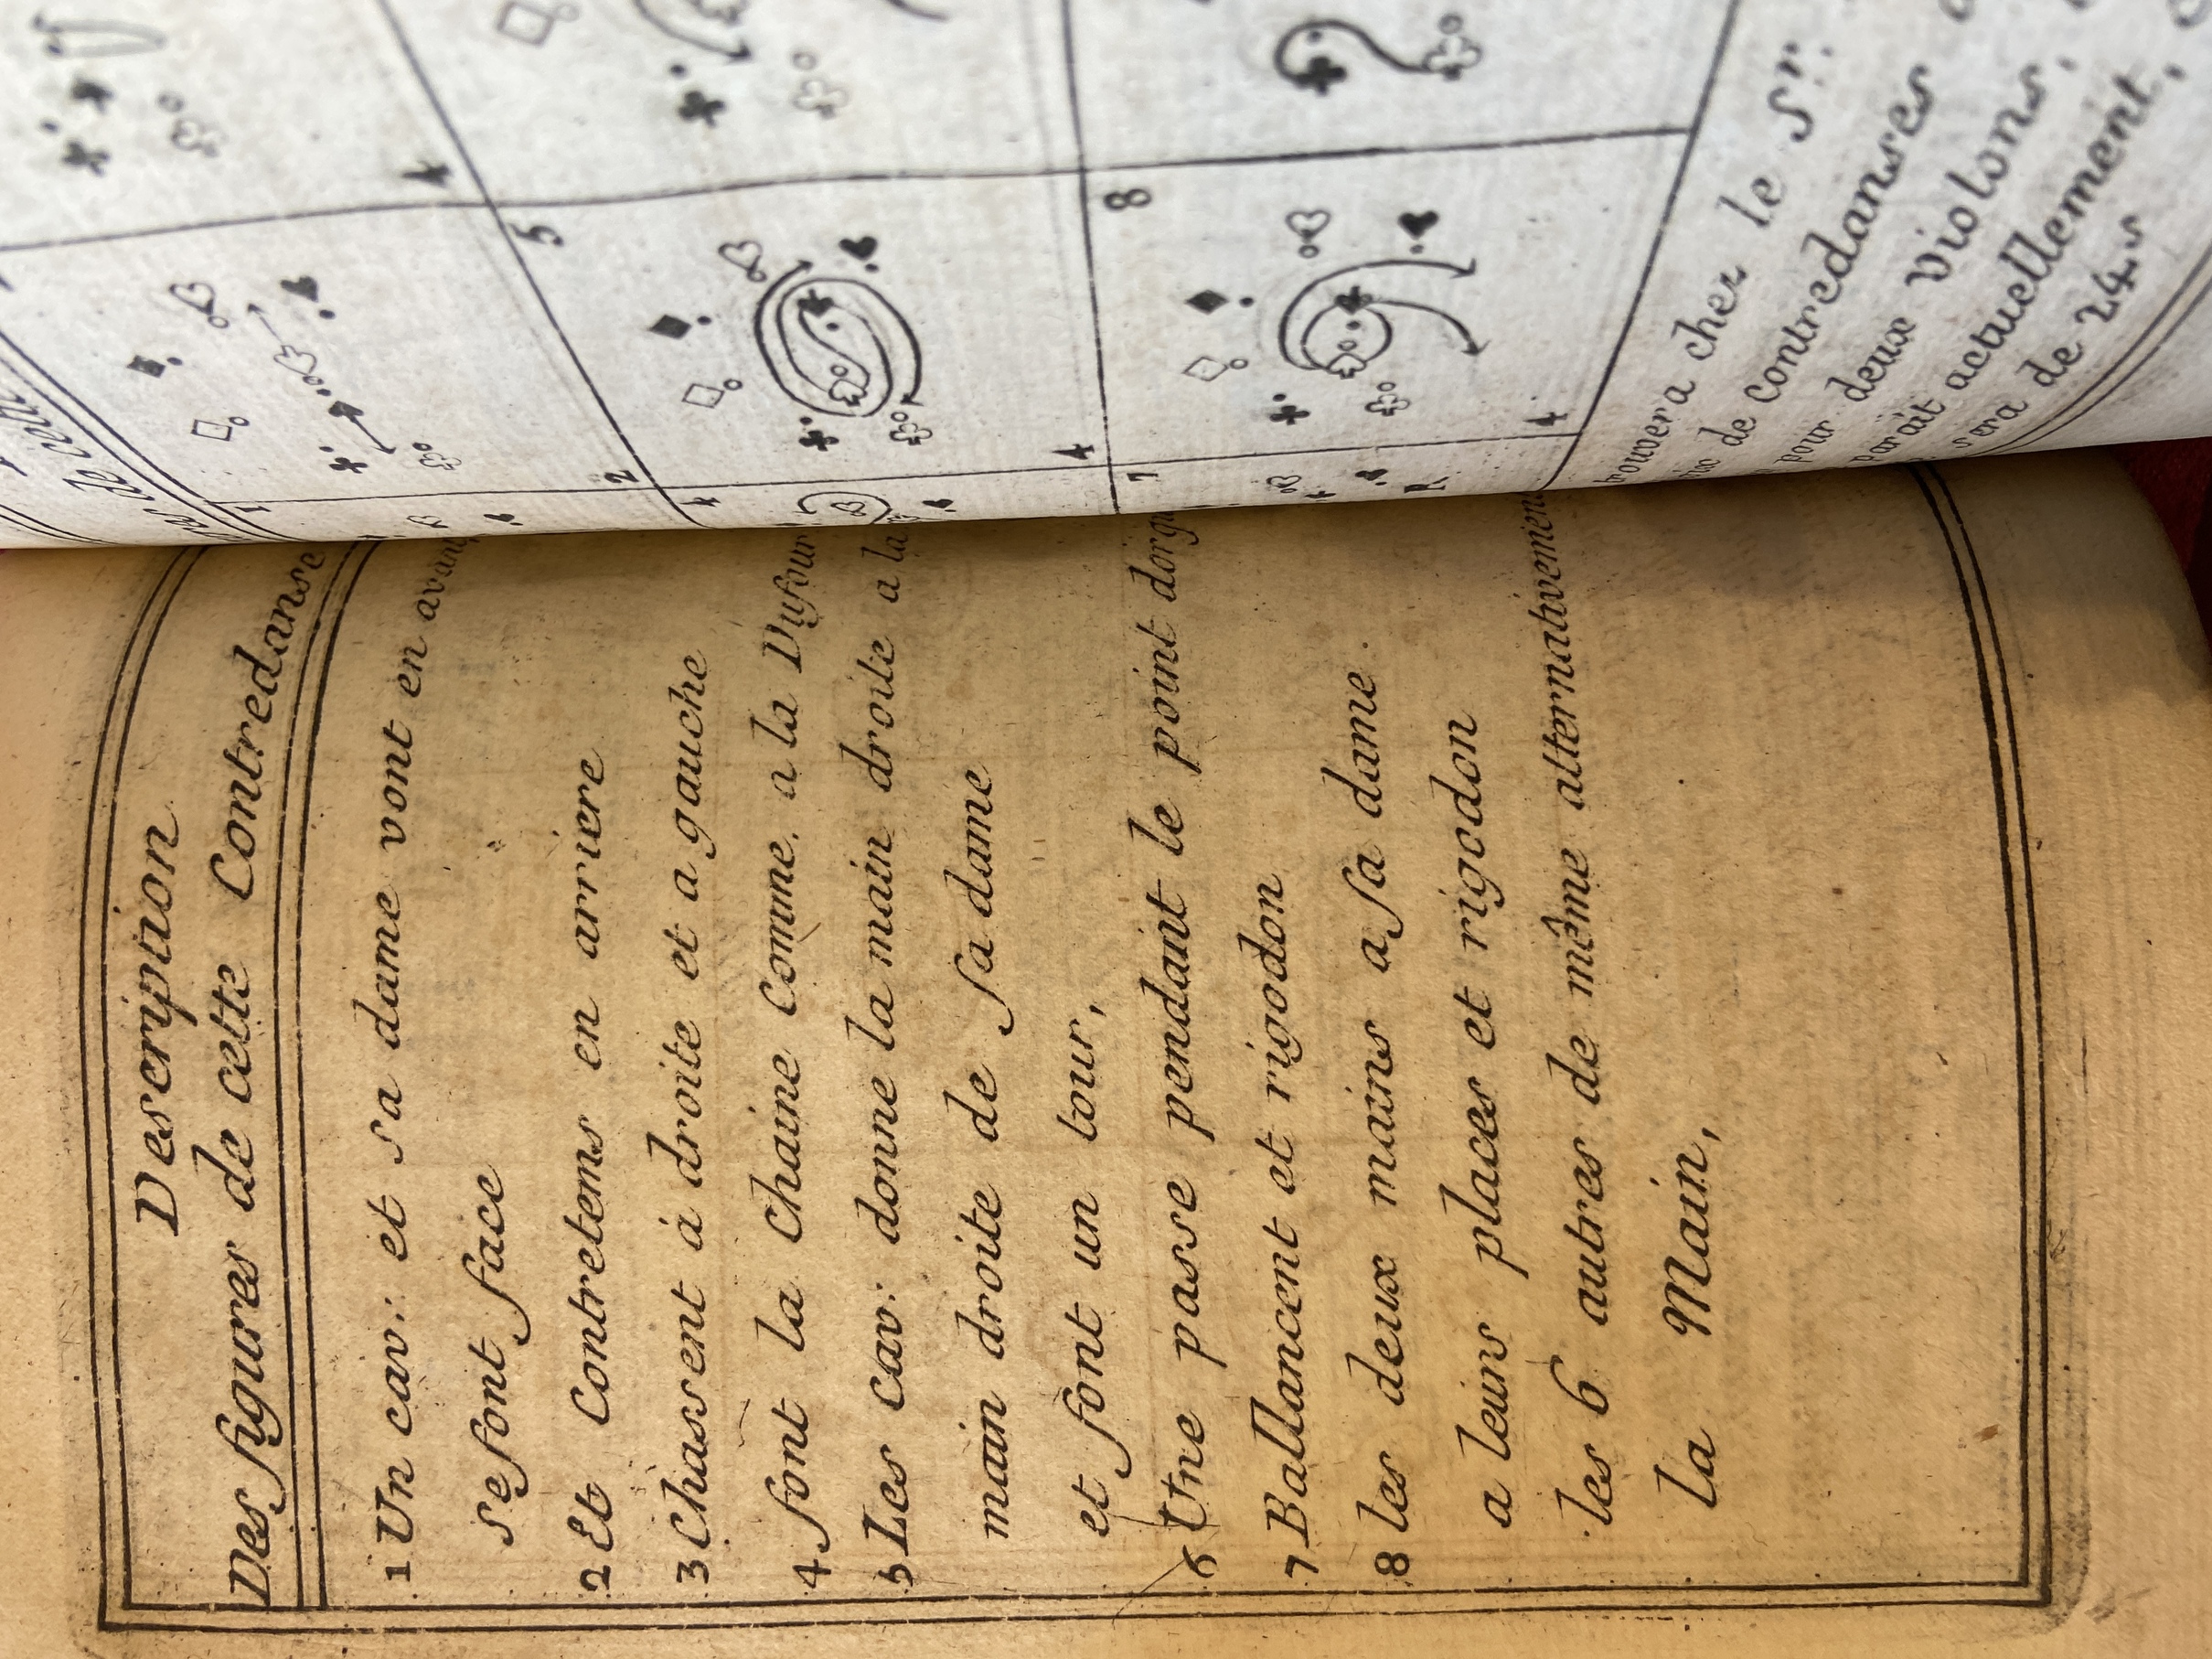 Description
Des figures de cette Contredanse
1 Un cav: et sa dame vont en
se font face
2 Et Contretems en arriere
3 Chassent à droite et a gauche
4 font la Chaine Comme a la Dufour
5 Les cav: donne la main droite a la
main droite de sa dame
et font un tour,
6 Une passe pendant le point
7 Ballancent et rigodon
8 les deux mains a sa dame
a leurs places et rigodon
les 6 autres de même
la Main,
2
4
4
5
4
7
8
4
trouvera chez le Sr.
de contredanses
pour deux violons,
parait actuellement,
sera de 24.s